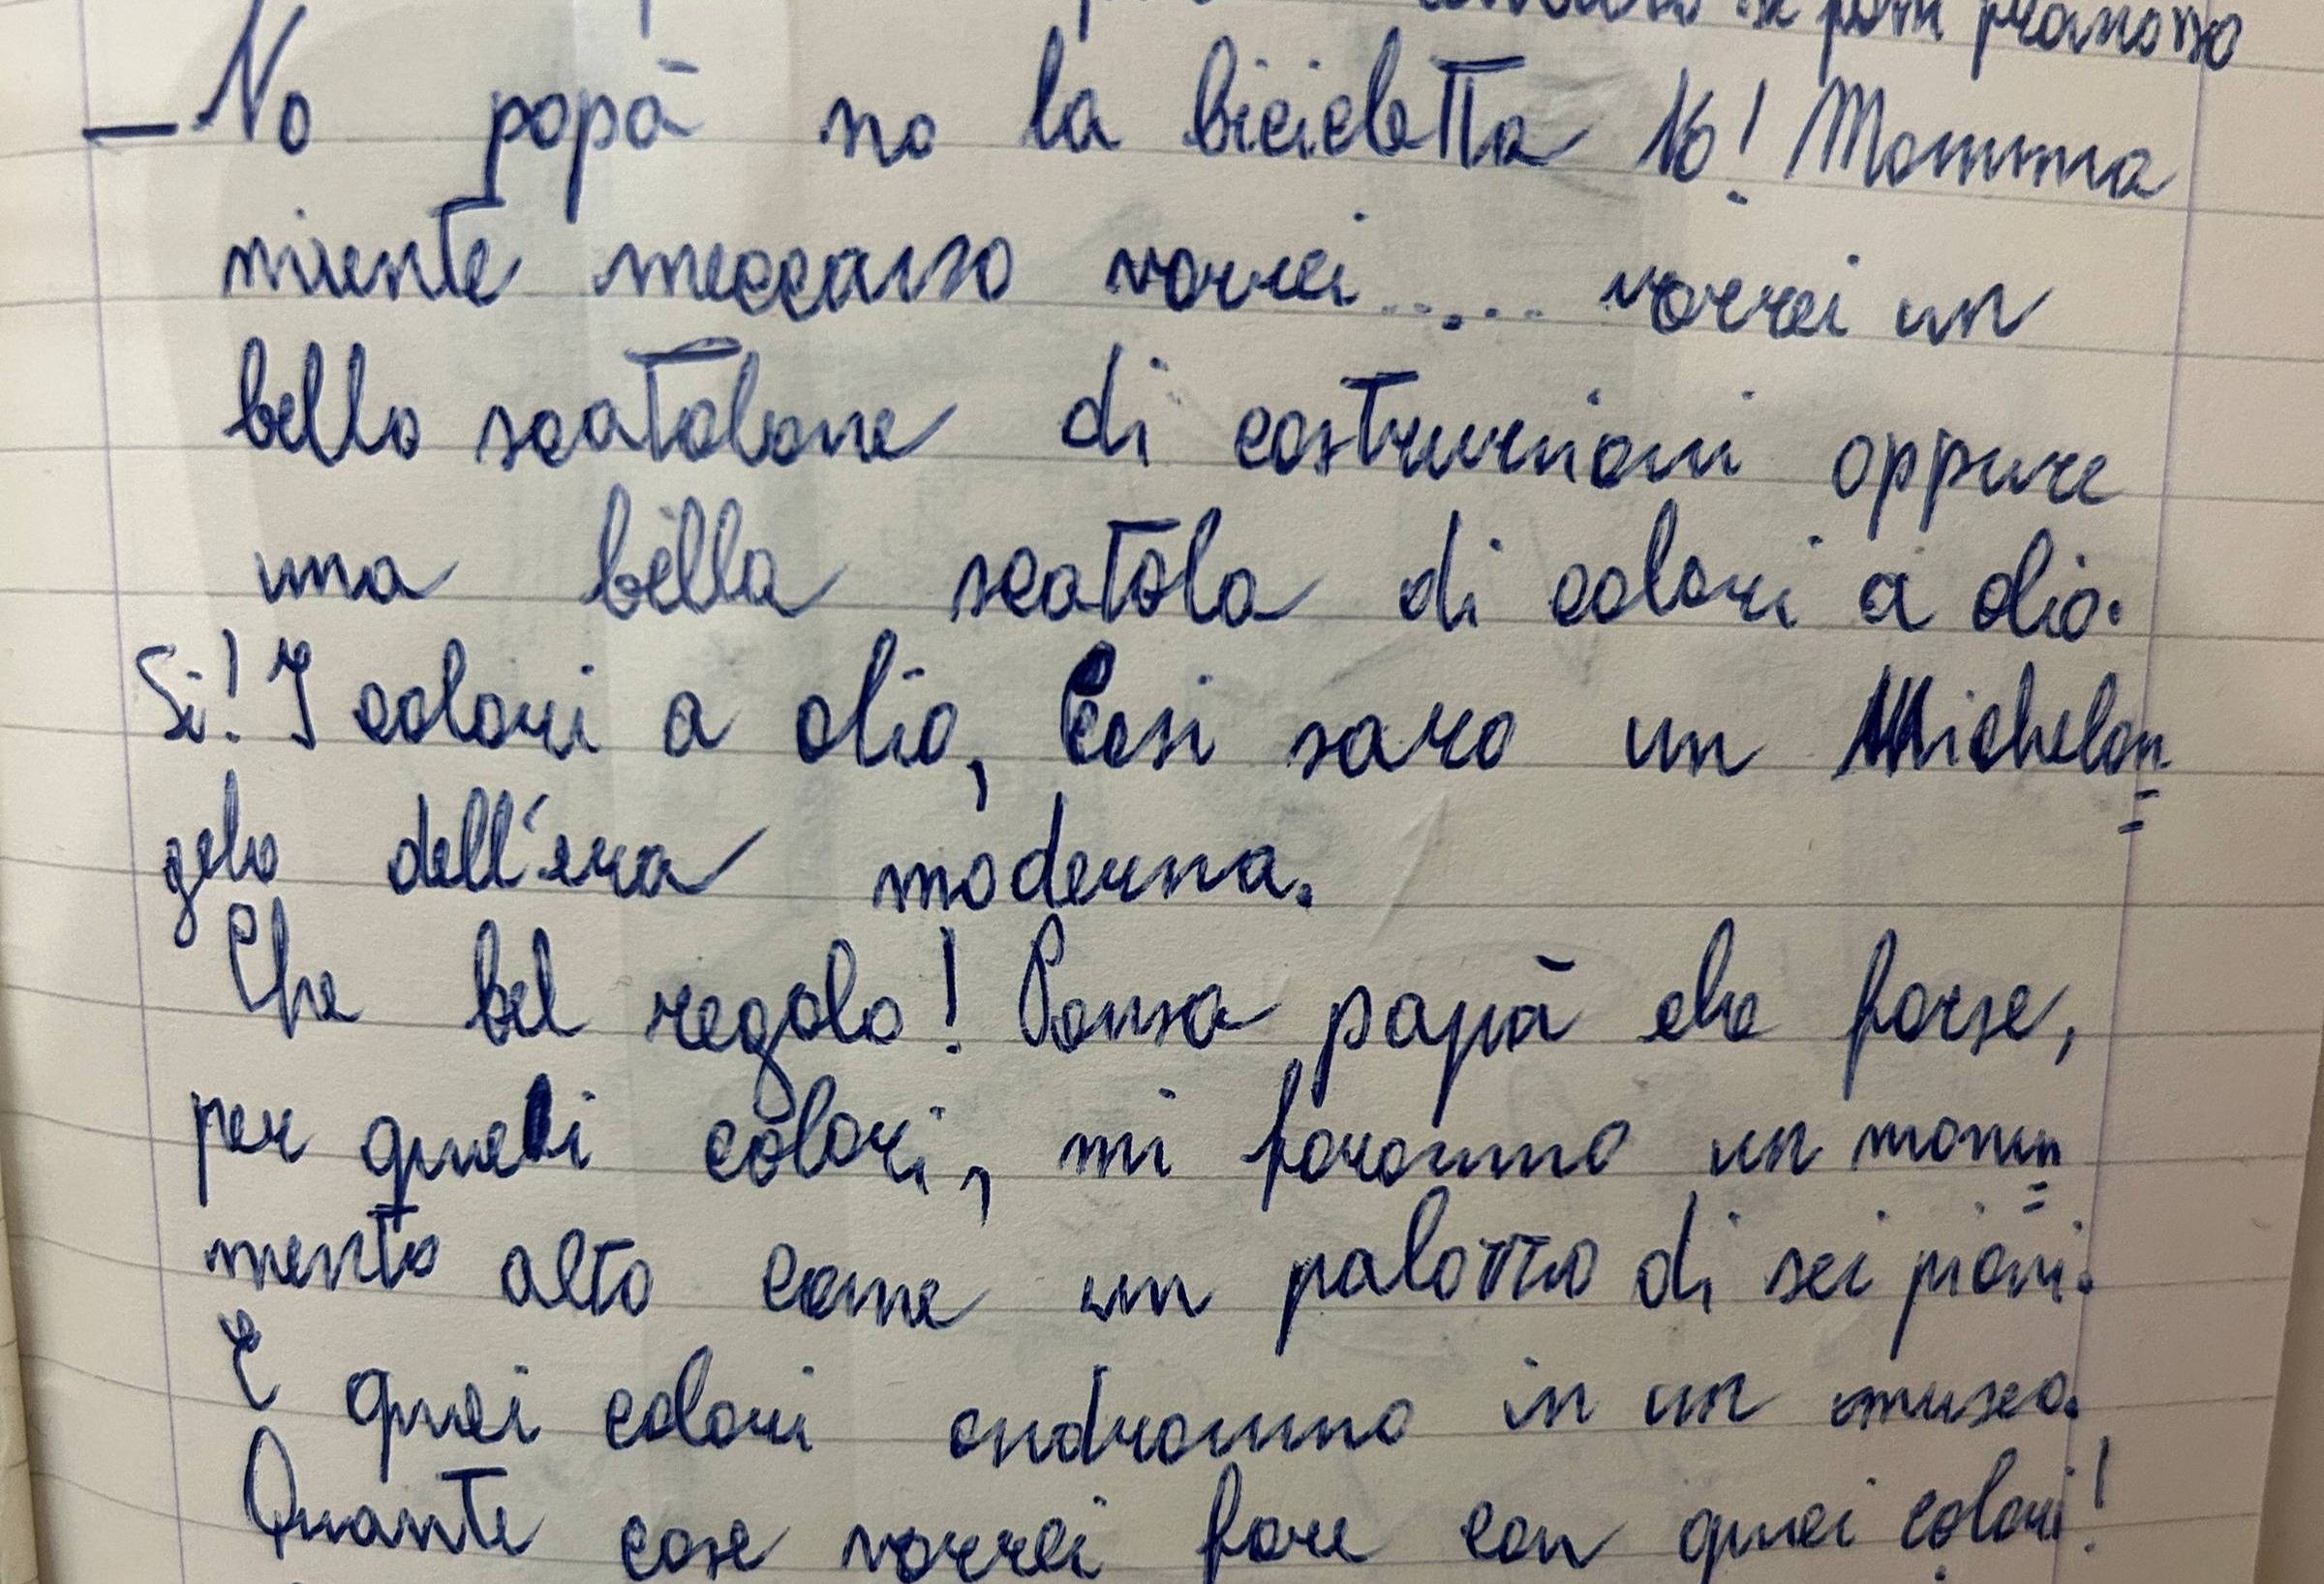 — No papà no la bicicletta No! Mamma
niente meccano vorrei...... vorrei un
bello scatolone di costruzioni oppure
una bella scatola di colori a olio.
Si! I colori a olio, Cosi saro un Michelan=
gelo dell'era moderna.
Che bel regalo! Pensa papà che forse,
per quei colori, mi faranno un monu=
mento alto come un palazzo di sei piani.
E quei colori andranno in un museo.
Quante cose vorrei fare con quei colori!